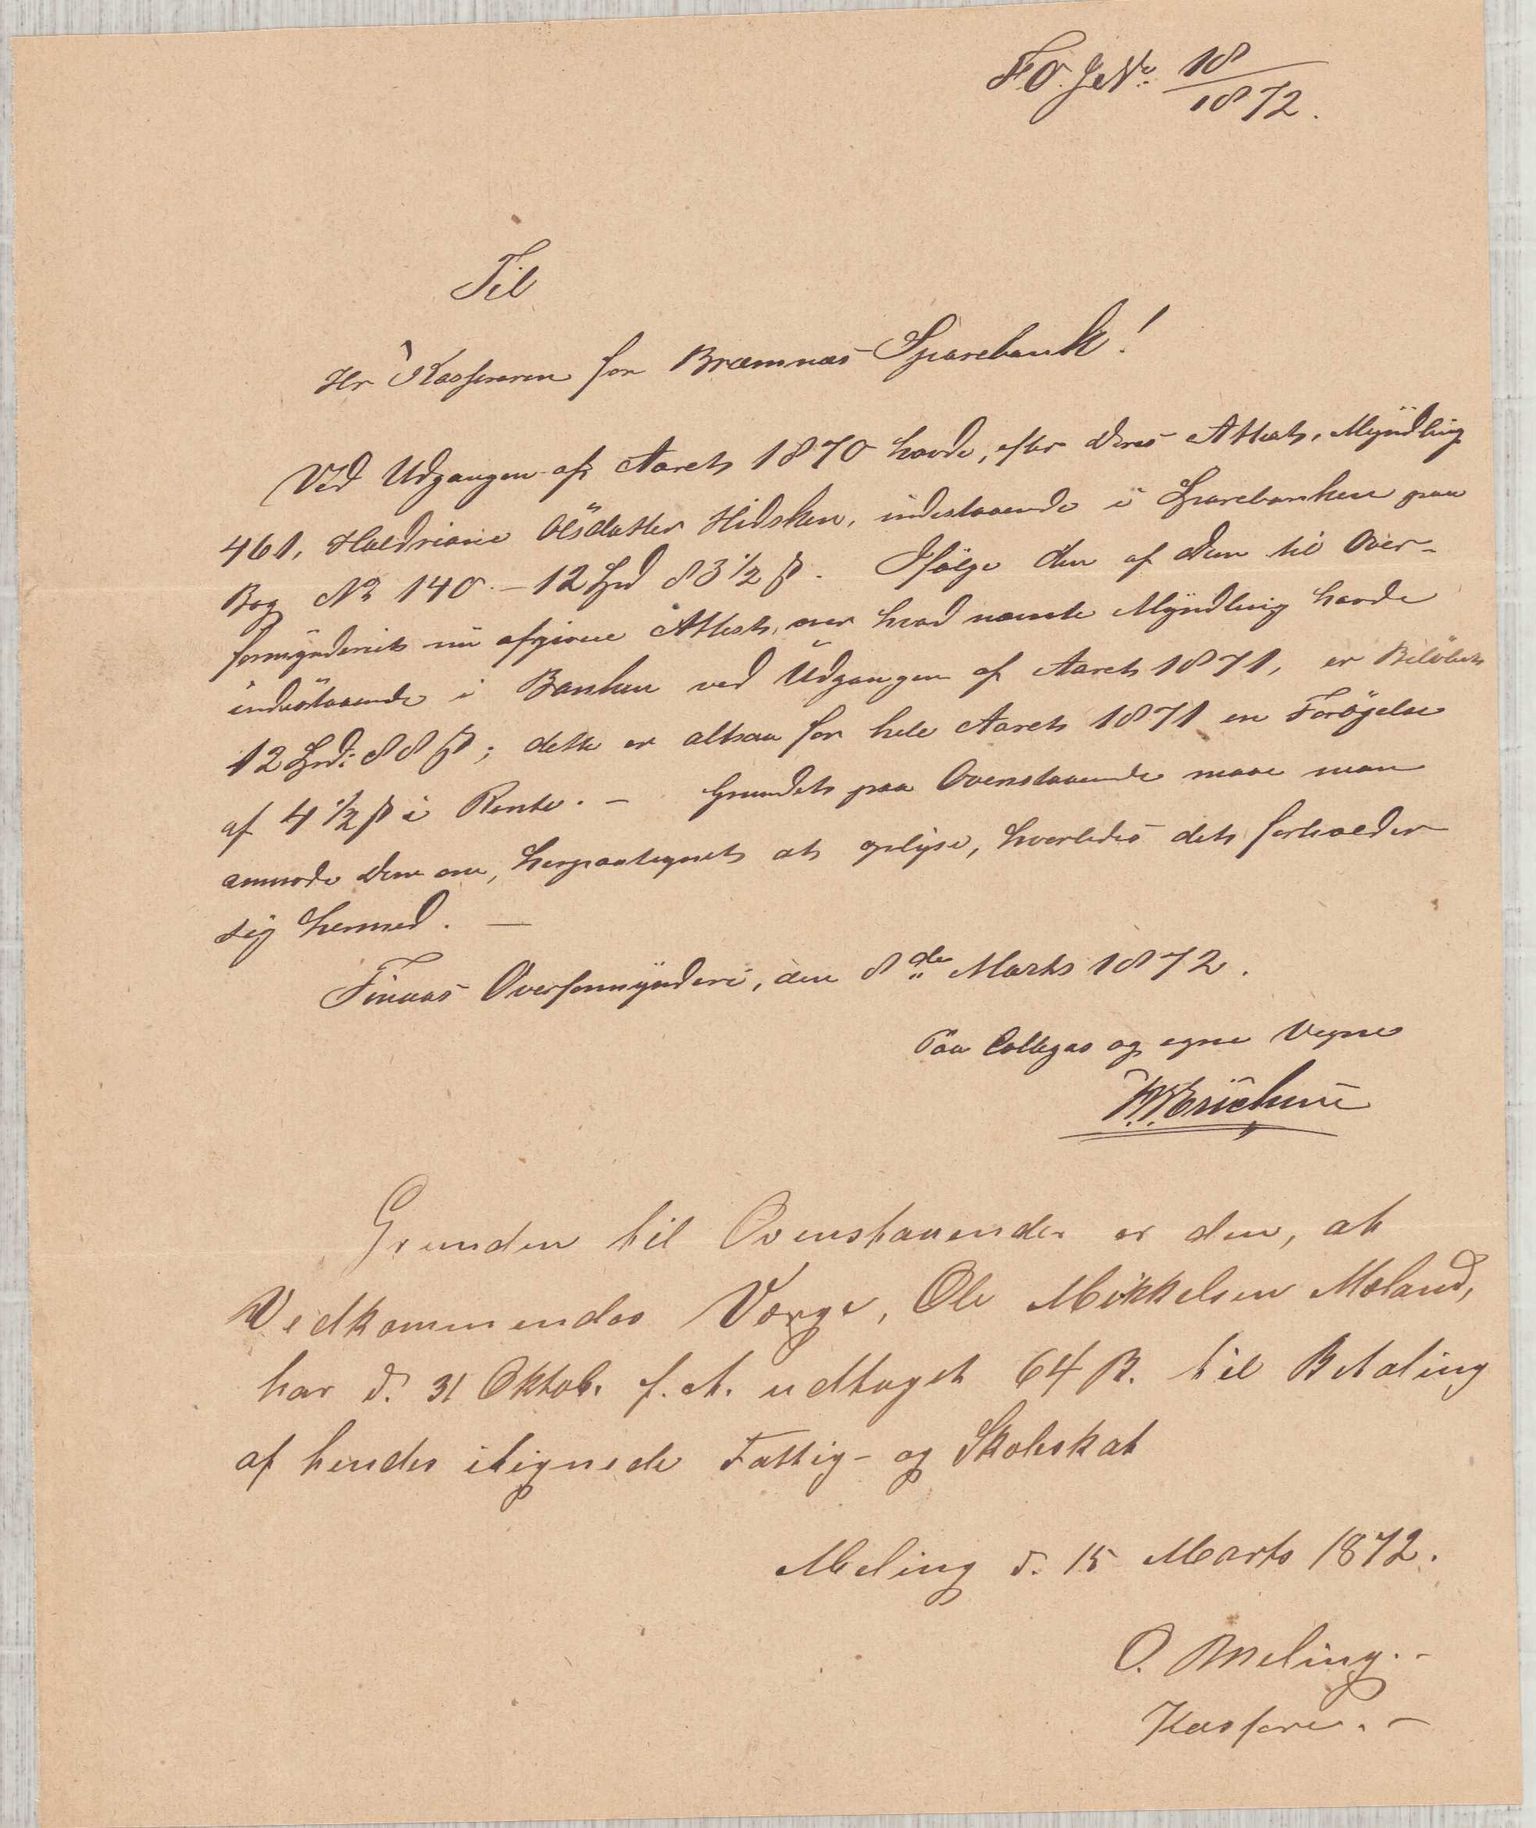 F.O. J. No 18/1872.
Til
Hr Kassereren for Bræmnæs Sparebank!
Ved Udgangen af Aaret 1870 havde, efter Deres Attest, Myndling
461, Haldriane Olsdatter Hidsken, indestaaende i Sparebanken paa
Bog No 140 – 12 Spd 83 1/2 β. Ifølge den af Dem til Over-
formynderiet nu afgivne Attest, over hvad nævnte Myndling havde
indestaaende i Banken ved Udgangen af Aaret 1871, er Beløbet
12 Spd: 88 β; dette er altsaa for hele Aaret 1871 en Forøgelse
af 4 1/2 β i Rente. – Grundet paa Ovenstaaende maae man
anmode Dem om, herpaategnet at oplyse, hvorledes det forholder
sig hermed. –
Finnas Overformynderi, den 8de Marts 1872.
Paa Collegas og egne Vegne
Grunden til Ovenstaaende er den, at
Vedkommendes Værge, Ole Mikkelsen Mæland,
har d. 31 Oktob. f. A. udtaget 64 β. til Betaling
af hendes ilignede Fattig- og Skoleskat
Meling d. 15 Marts 1872.
O. Meling. –
Kasserer. –